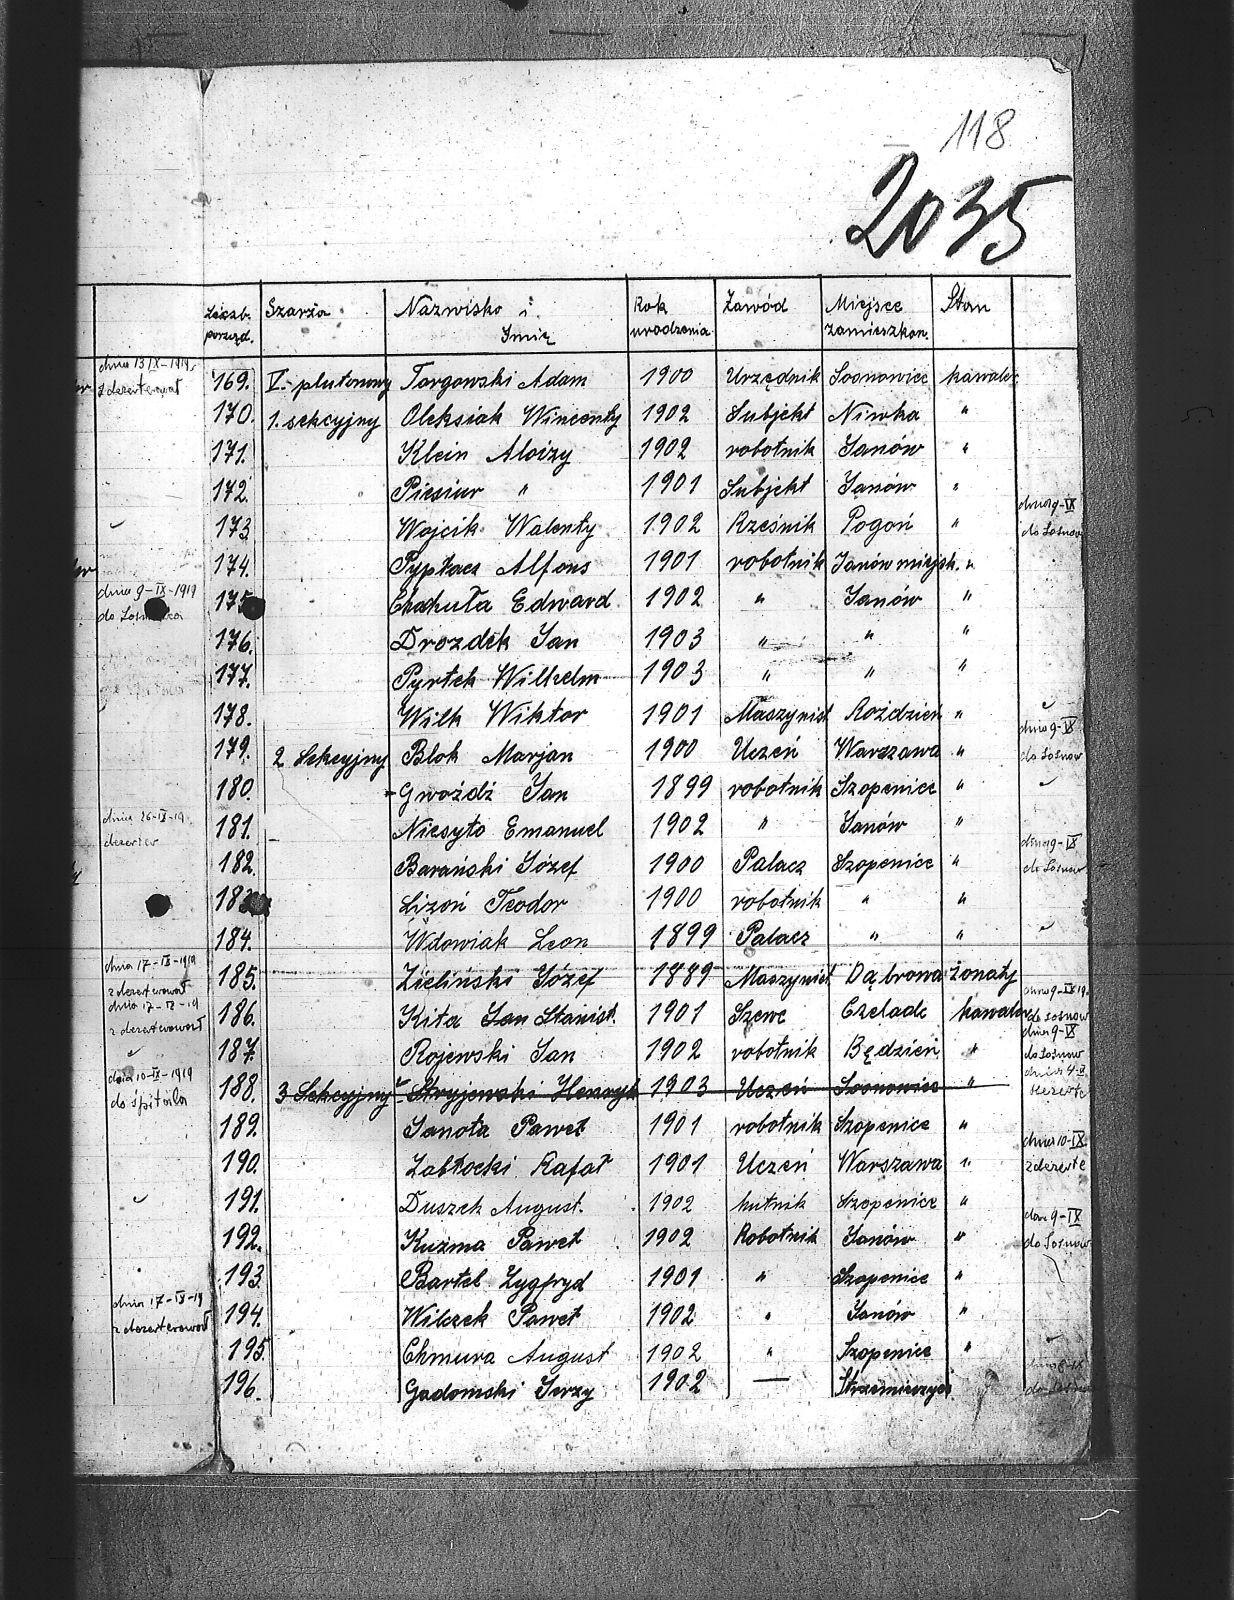 118
2035
Liczb. porząd. Szarża Nazwisko i Imię Rok urodzenia Zawód Miejsce zamieszkan. Stan
dnia 13 IX-1919
zdezerterował
169. V. plutonowy Torgowski Adam 1900 Urzędnik Sosnowiec kawaler
170. 1. sekcyjny Oleksiak Wincenty 1902 Subjekt Niwka "
171. Klein Aloizy 1902 robotnik Janów "
172. Piesiur " 1901 Subjekt Janów "
dnia 9-IX
173. Wojcik Walenty 1902 Rześnik Pogoń " do Sosnow
174. Pypłacz Alfons 1901 robotnik Janów miejsk. "
dnia 9-IX-1919
175. Chahuła Edward 1902 " Janów "
176. Drozdek Jan 1903 " " "
177. Pyrtek Wilhelm 1903 " " "
178. Wilk Wiktor 1901 Maszynist Roździeń "
dnia 9-IX
179. 2 Sekcyjny Blok Marjan 1900 Uczeń Warszawa " do Sosnow
180. Gwoźdź Jan 1899 robotnik Szopenice "
dnia 26-IX-19
dezerter
181. Niesyto Emanuel 1902 " Janów "
dnia 9-IX
182. Barański Józef 1900 Palacz Szopenice " do Sosnow
183. Lizoń Teodor 1900 robotnik " "
184. Wdowiak Leon 1899 Palacz " "
dnia 17-IX-1919
zdezerterował
185. Zieliński Józef 1889 Maszynist Dąbrowa żonaty
dnia 17-IX-19
zdezerterował
dnia 9-IX 19
186. Kita Jan Stanisł. 1901 Szewc Czeladz kawaler do Sosnow
dnia 9-IX
187. Rojewski Jan 1902 robotnik Będzień " do Sosnow
dnia 10-IX-1919
do śpitala
188. 3 Sekcyjny Stryjewski Henryk 1903 Uczeń Sosnowiec "
189. Janota Paweł 1901 robotnik Szopenice "
dnia 10-IX
190. Zabłocki Rafał 1901 Uczeń Warszawa " zdezerte
191. Duszek August. 1902 hutnik Szopenice "
dnia 9-IX
192. Kuzma Paweł 1902 Robotnik Janów " do Sosnow
193. Bartel Zygfryd 1901 " Szopenice "
dnia 17-IX-19
zdezerterował
194. Wilczek Paweł 1902 " Janów "
195. Chmura August 1902 " Szopenice "
196. Gadomski Jerzy 1902 — Strzemieszyce